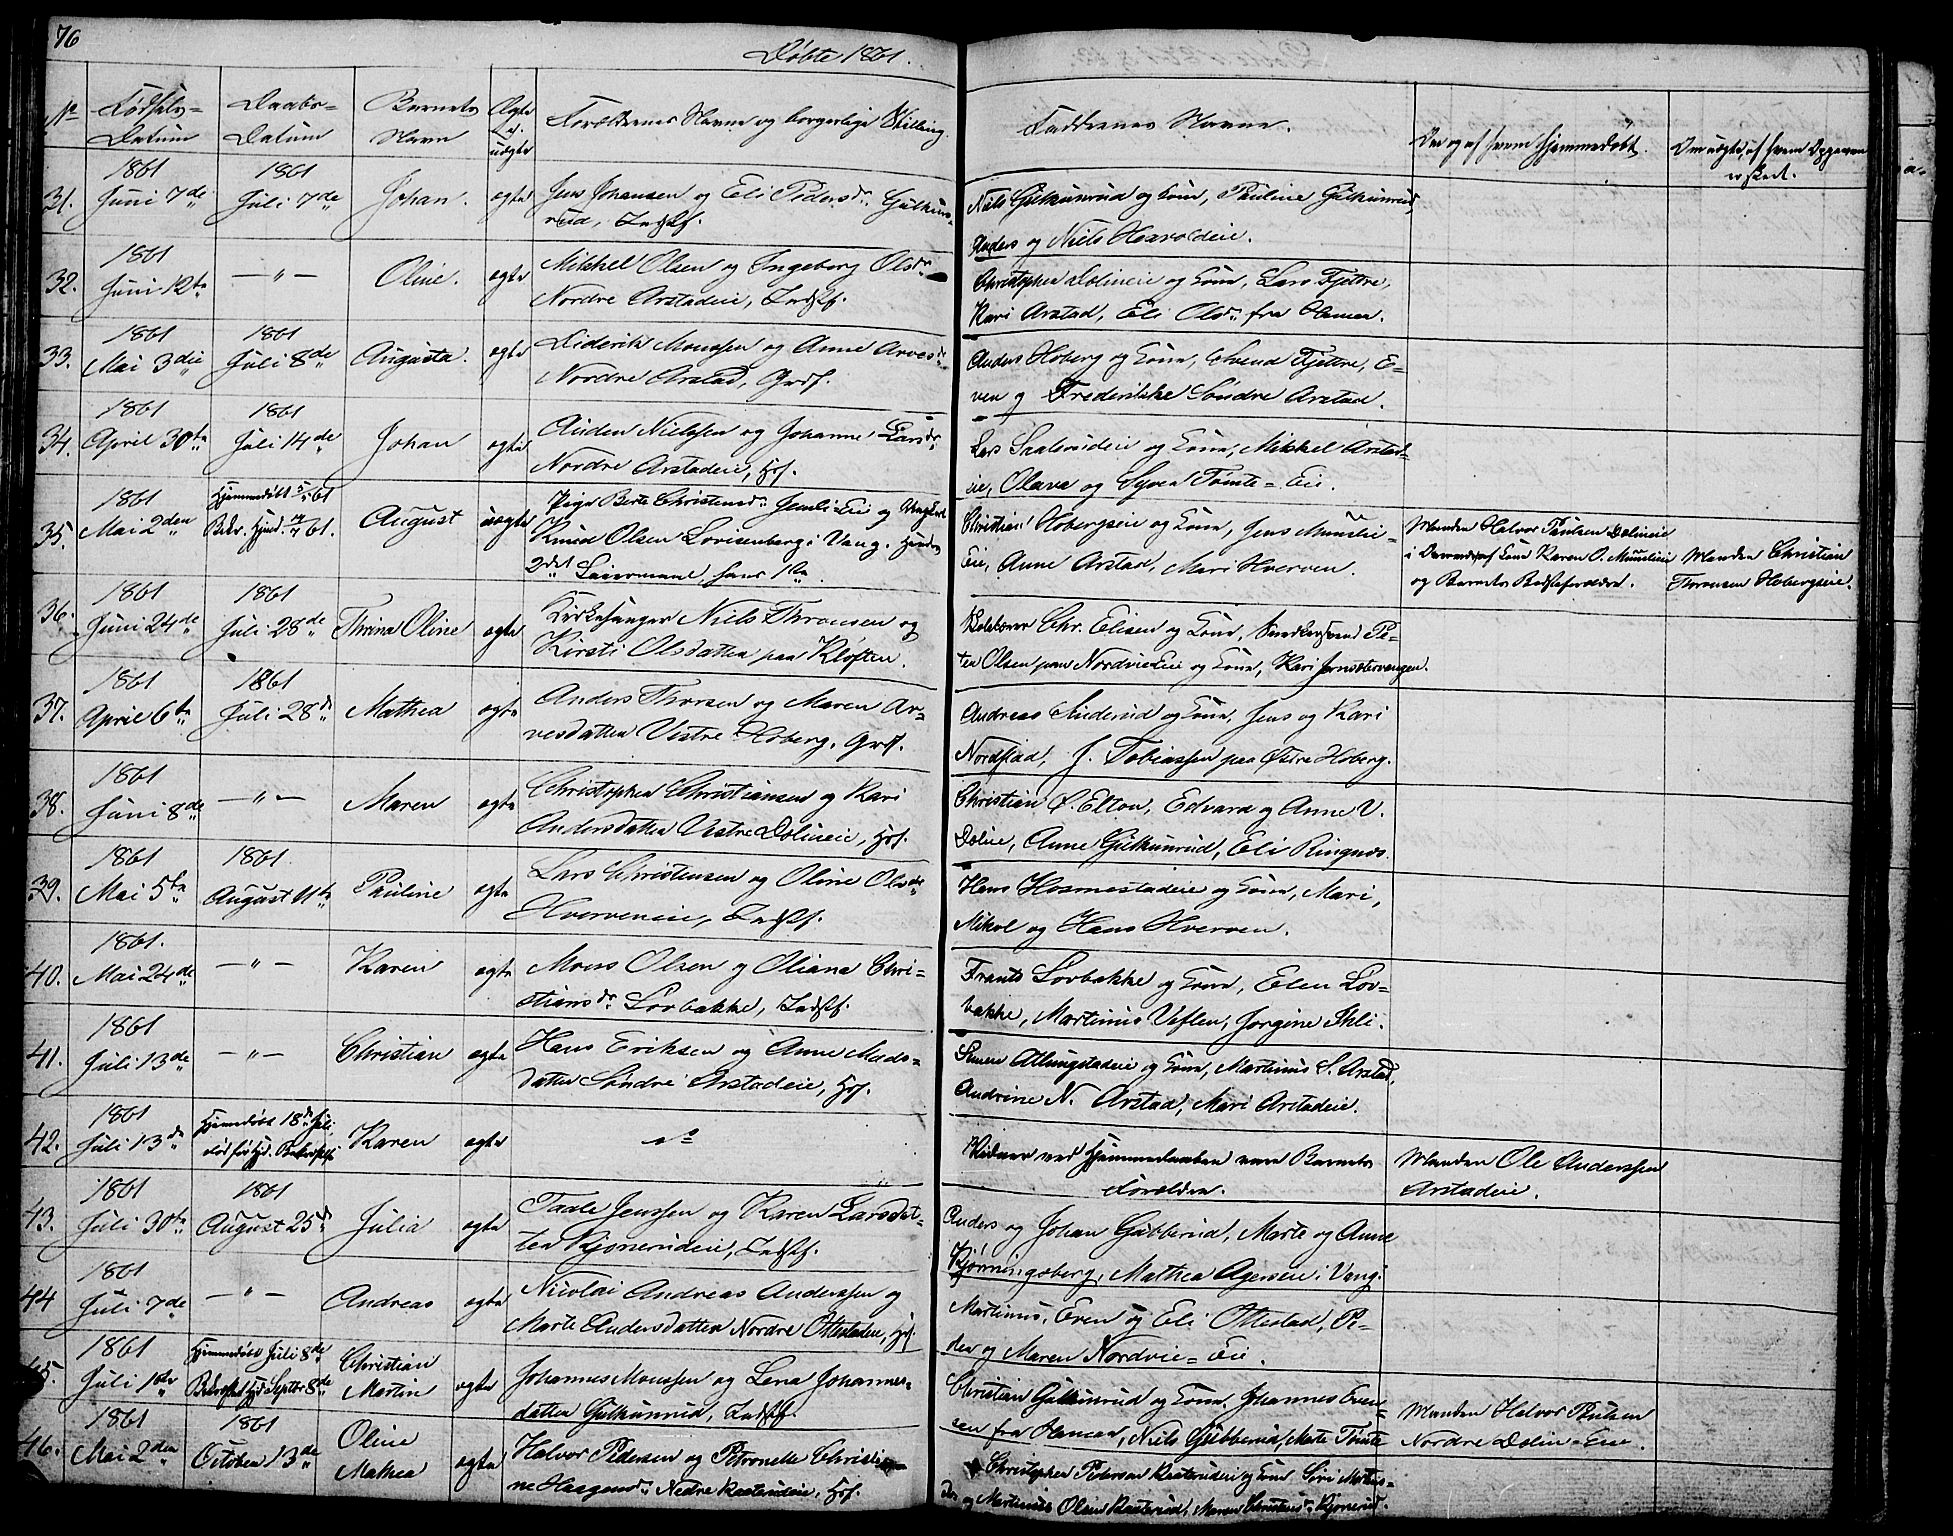 76
Døbte 1861.
No
Fødsels-Datum
Daabs-Datum
Barnets Navn
Ægte el. uægte
Forældrenes Navne og borgerlige Stilling.
Faddrenes Navne.
Om og af hvem hjemmedøbt.
Om uægte, af hvem Opgaven er skeet.
31. 1861 Juni 7de 1861 Juli 7de Johan. ægte Jens Johansen og Eli Pedersdr. Gulkuns-
rud, Indstf.
Niels Gulkunrud og Kone, Pauline Gulkunrud,
Anders og Niels Haraldeie.
32. 1861 Juni 12te — " — Oline. ægte Mikkel Olsen og Ingeborg Olsdr.
Nordre Arstadeie, Indstf.
Christopher Dolineie og Kone, Lars Fjettre,
Kari Arstad, Eli Olsdr. fra Hamar.
33. 1861 Mai 3die 1861 Juli 8de Augusta. ægte Diderik Monssen og Anne Arvesdr.
Nordre Arstad, Grdf.
Anders Hoberg og Kone, Svend Fjettre, E-
ven og Frederikke Søndre Arstad.
34. 1861 April 30te 1861 Juli 14de Johan ægte Auden Nielssen og Johanne Larsdr.
Nordre Arstadeie, Hf.
Lars Saalerudeie og Kone, Mikkel Arstad-
eie, Olava og Syver Tomte-Eie.
35. 1861 Mai 2den Hjemmedøbt 5/5 61.
Bekr. Hjmd. 14/7 61. August uægte Pige Berte Christensdr. Jemli-Eie og Ungkarl
Knud Olsen Lovisenberg i Vang. Hendes
2det Leiermaal, hans 1ste.
Christian Hobergseie og Kone, Jens Munslie-
Eie, Anne Arstad, Mari Hverven.
Manden Halvor Paulsen Dolineie
i Overvær af Kone Karen O. Munslieie
og Barnets Bedsteforældre.
Manden Christian
Thronsen Hobergseie.
36. 1861 Juni 24de 1861 Juli 28de Thrina Oline ægte Kirkesanger Niels Thronsen og
Kirsti Olsdatter paa Kløften.
Skolelærer Chr. Elisen og Kone, Snedkersvend Pe-
ter Olsen paa Nordvie-Eie og Kone, Kari Jernsætervangen.
37. 1861 April 6te 1861 Juli 28de Mathea ægte Anders Thorsen og Maren Ar-
vesdatter Vestre Hoberg, Grdf.
Andreas Sinderud og Kone, Jens og Kari
Nordstad, J. Tobiassen paa Østre Hoberg.
38. 1861 Juni 8de — " — Maren ægte Christopher Christiansen og Kari
Andersdatter Vestre Dolineie, Hf.
Christian Ø. Elton, Edvard og Anne V.
Doline, Anne Gulkunrud, Eli Ringnes.
39. 1861 Mai 5te 1861 August 11te Pauline ægte Lars Christensen og Oline Olsdr.
Hverveneie, Indstf.
Hans Hosmestadeie og Kone, Mari,
Mikel og Hans Hverven.
40. 1861. Mai 24de — " — Karen ægte Moses Olsen og Oliana Chri-
stiansdr. Lovbakke, Indstf.
Frants Lovbakke og Kone, Elen Lov-
bakke, Martinus Veflen, Jorgine Skli.
41. 1861 Juli 13de — " — Christian ægte Hans Eriksen og Anne Mads-
datter Søndre Arstadeie, Hf.
Simen Atlungstadeie og Kone, Martinus S. Arstad,
Andrine N. Arstad, Mari Arstadeie.
42. 1861 Juli 13de Hjemmedøbt 18de Juli
død før Hjd. Bekræftelse Karen ægte
Vidner ved Hjemmedaaben vare Barnets
Forældre.
Manden Ole Anderssen
Arstadeie.
43. 1861 Juli 30te 1861 August 25de Julia ægte Taale Jenssen og Karen Larsdat-
ter Kjonerudeie, Indstf.
Anders og Johan Gubberud, Marte og Anne
Kjønningsberg, Mathea Agerseie i Vang.
44 1861 Juli 7de — " — Andreas ægte Nicolai Andreas Anderssen og
Marte Andersdatter Nordre Ottestadeie, Hf.
Martinus, Even og Eli Ottestad, Pe-
der og Maren Nordvie-Eie.
45. 1861 Juli 1ste Hjemmedøbt Juli 8de
Bekræftet Hjd. Septbr 8de Christian Martin ægte Johannes Monssen og Lena Johannes-
datter Gulkunrud, Indstf.
Christian Gulkunrud og Kone, Johannes Even-
sen fra Hamar, Niels Gubberud, Marte Tomte
Manden Halvor Paulsen
Nordre Dolin-Eie.
46. 1861 Mai 2den 1861 October 13de Oline Mathea ægte Halvor Pedersen og Petronelle Christi-
ne Haagensdr. Nedre Kasterudeie, Hf.
Christopher Pedersen Kasterudeie og Kone Siri Mortens-
dr. og Martinus Olsen Kasterud, Maren Christensdr. Kjonerud.